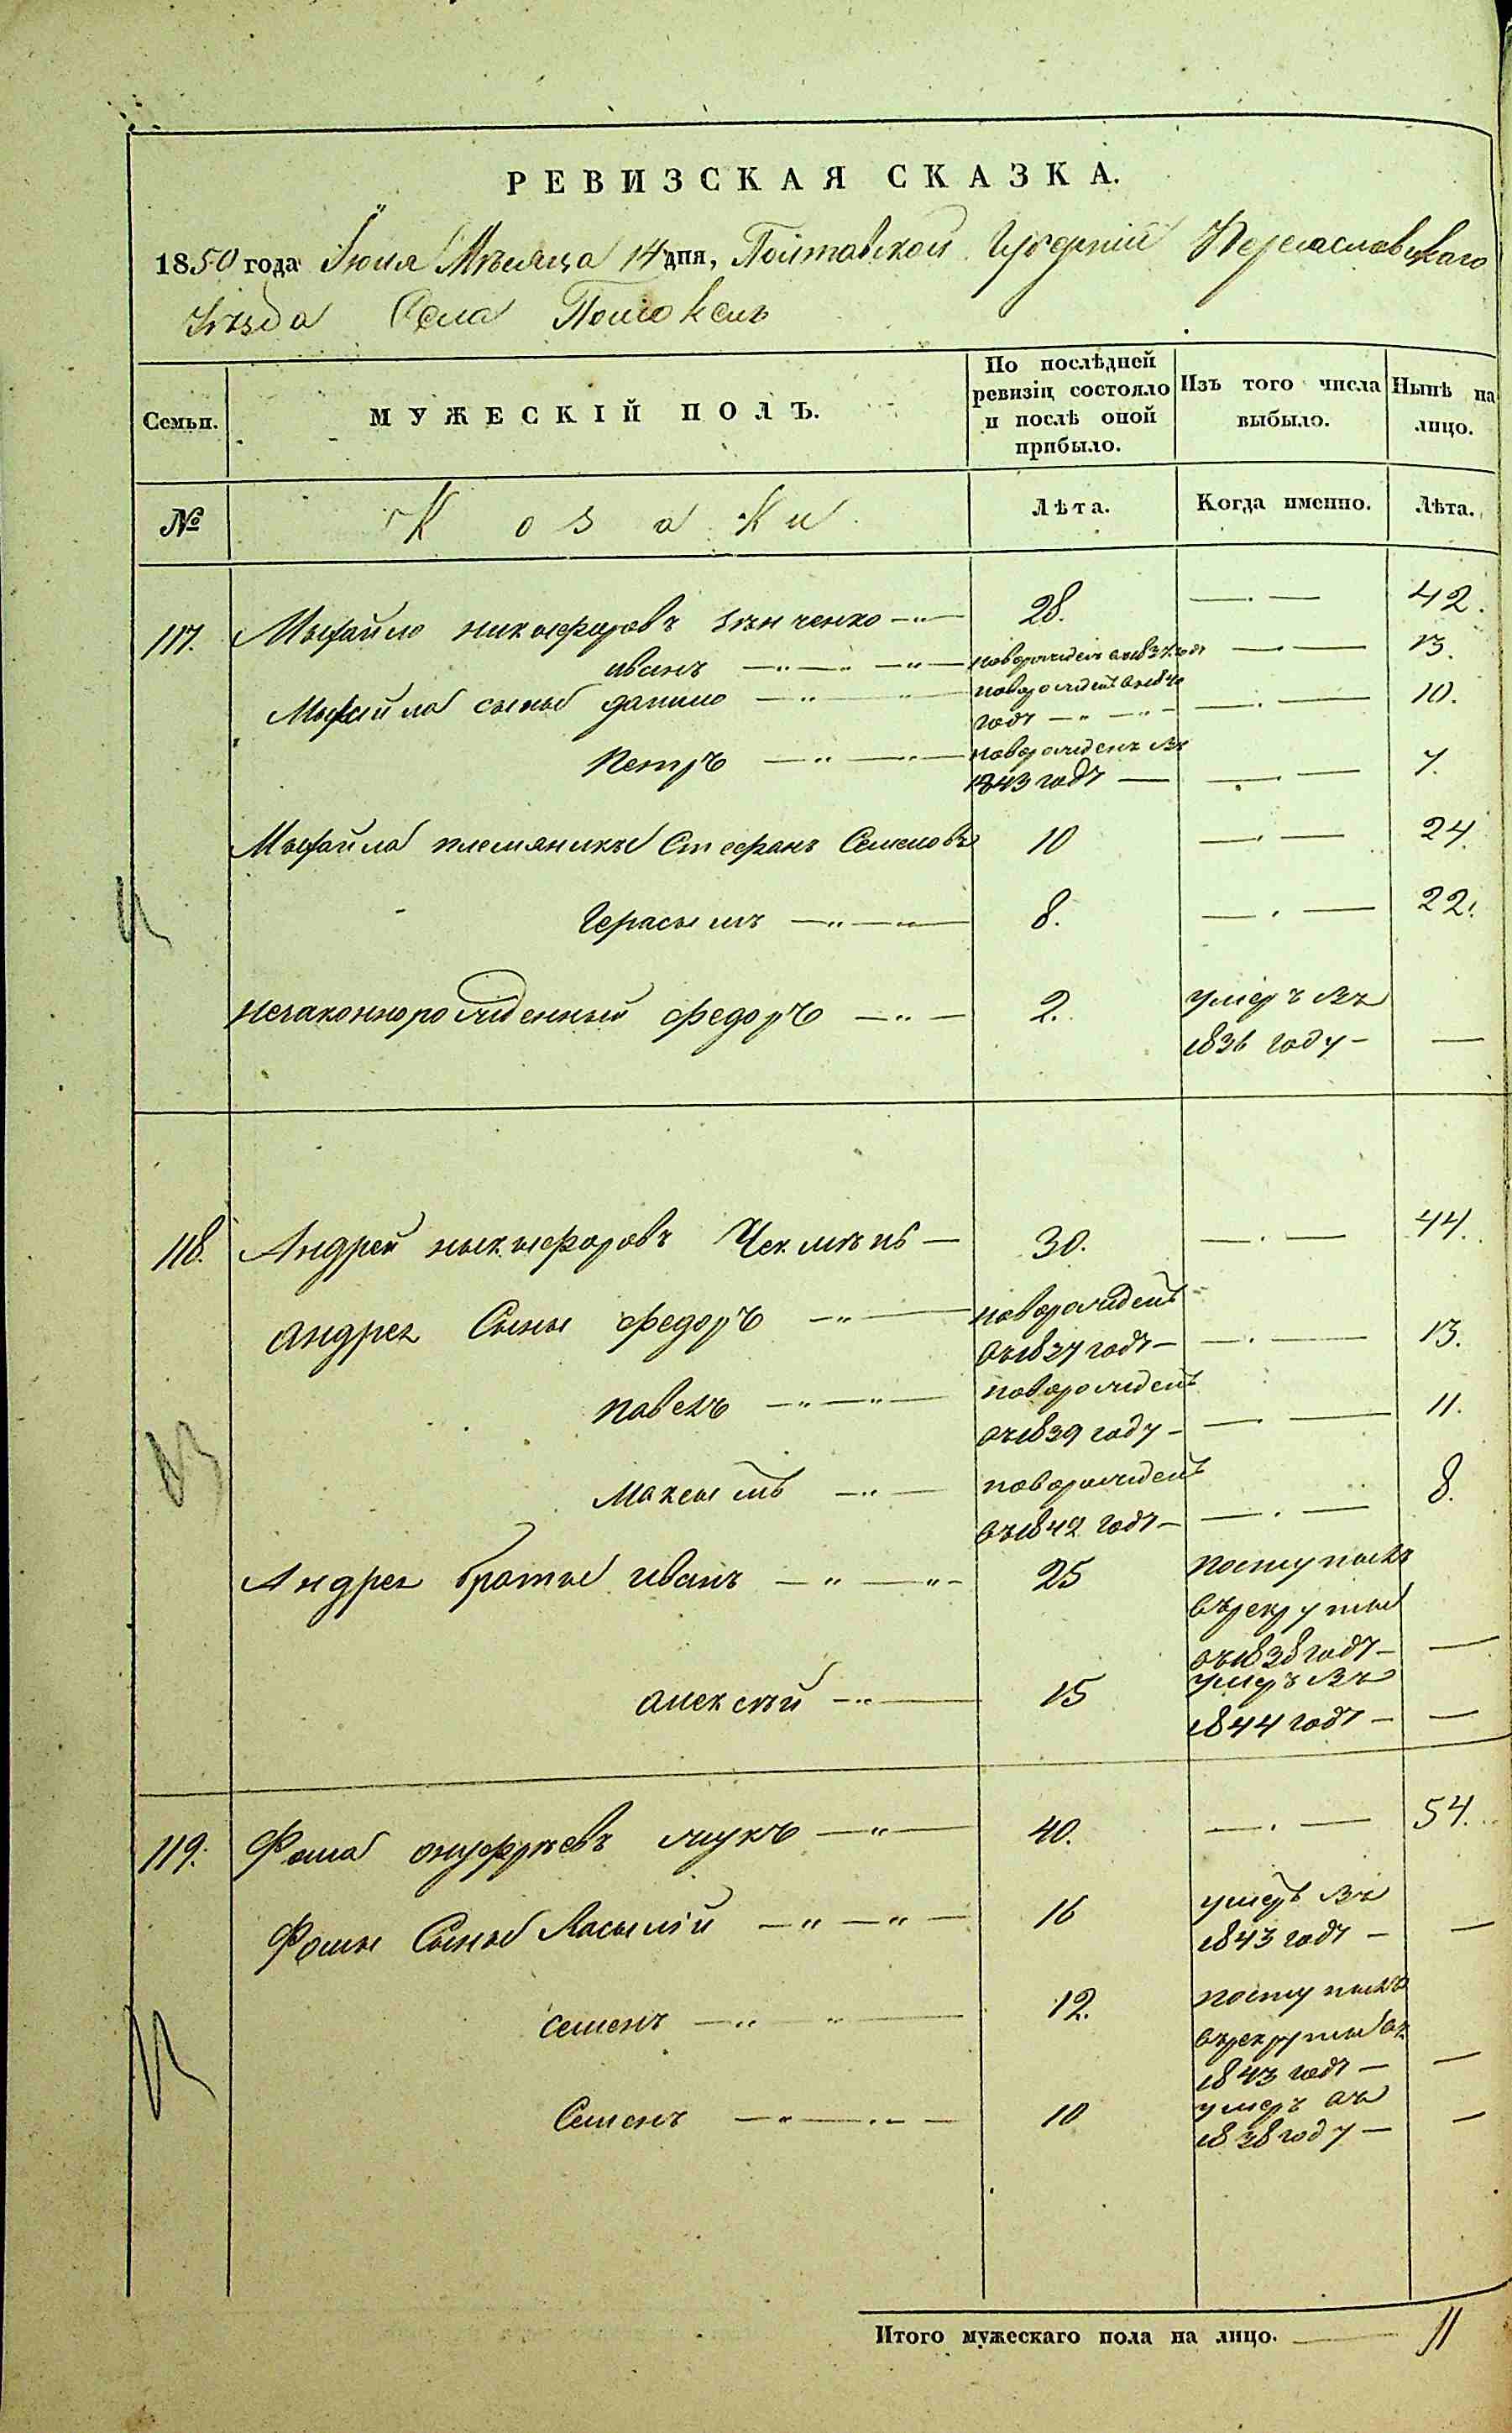 РЕВИЗСКАЯ СКАЗКА.
1850 года Іюня Мѣсяца 14 дня, Полтавской Губерніи Переаславскаго
Уѣзда Села Помокель
Семьи.
МУЖЕСКІЙ ПОЛЪ.
По послѣдней
ревизіи состояло
и послѣ оной
прибыло.
Изъ того числа
выбыло.
Нынѣ на
лицо.
№
Козаки
Лѣта.
Когда именно.
Лѣта.
117. Мыхайло никыфоровъ Зѣнченко 28. 42.
иванъ новорожденъ въ 1837 годъ 13.
Мыхайла сыны данило новорожденъ въ 1840 10.
годъ
Петръ новорожденъ въ
1843 годъ 7.
Мыхайла племяныкы Стефанъ Семеновъ 10 24.
Герасымъ 8. 22.
незаконнорожденный федоръ 2. умеръ въ
1836 году
118. Андрей ныкыфоровъ Чекмѣнь 30. 44.
андрея Сыны федоръ новорожденъ
въ 1837 годъ 13.
павелъ новорожденъ
въ 1839 году 11.
Максымъ новорожденъ
въ 1842 годъ 8.
Андрея братья иванъ 25 поступылъ
въ рекруты
въ 1838 годъ
алексѣй 15 умеръ въ
1844 годъ
119. Фома онуфрѣевъ жукъ 40. 54.
Фомы Сыны Васылій 16 умеръ въ
1843 годъ
семенъ 12. поступылъ
въ рекруты въ
1843 годъ
Семенъ 10 умеръ въ
1838 году
Итого мужескаго пола на лицо. 11